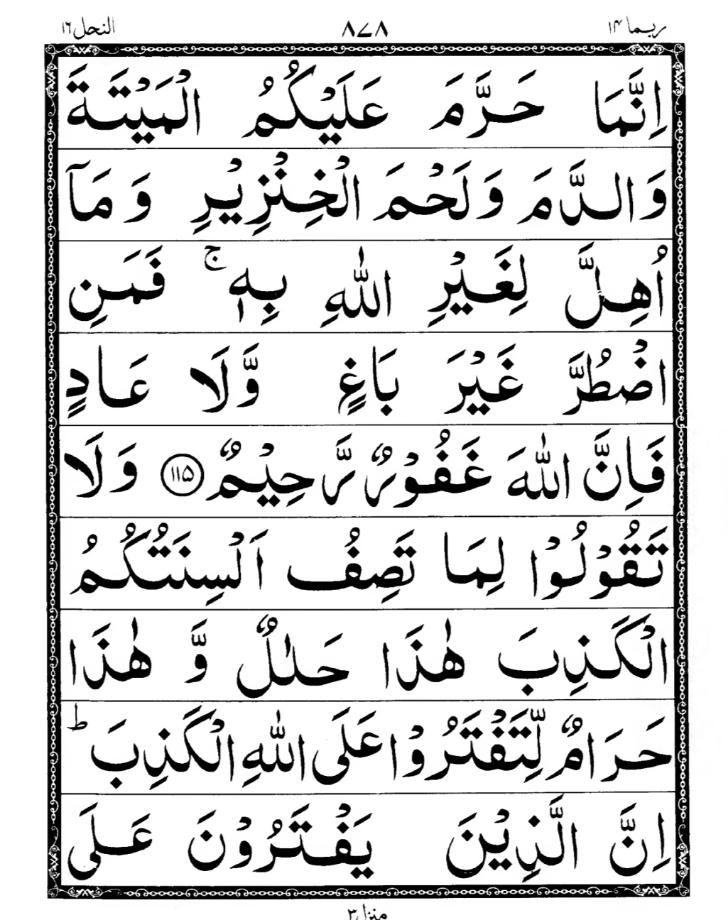 ربما ١٤ ٨٧٨ النحل ١٦
اِنَّمَا حَرَّمَ عَلَيْكُمُ الْمَيْتَةَ
وَالدَّمَ وَلَحْمَ الْخِنْزِيْرِ وَمَآ
اُهِلَّ لِغَيْرِ اللّٰهِ بِهٖ ۚ فَمَنِ
اضْطُرَّ غَيْرَ بَاغٍ وَّلَا عَادٍ
فَاِنَّ اللّٰهَ غَفُوْرٌ رَّحِيْمٌ ﴿۱۱۵﴾ وَلَا
تَقُوْلُوْا لِمَا تَصِفُ اَلْسِنَتُكُمُ
الْكَذِبَ هٰذَا حَلٰلٌ وَّ هٰذَا
حَرَامٌ لِّتَفْتَرُوْا عَلَى اللّٰهِ الْكَذِبَ ؕ
اِنَّ الَّذِيْنَ يَفْتَرُوْنَ عَلَى
منزل ٣